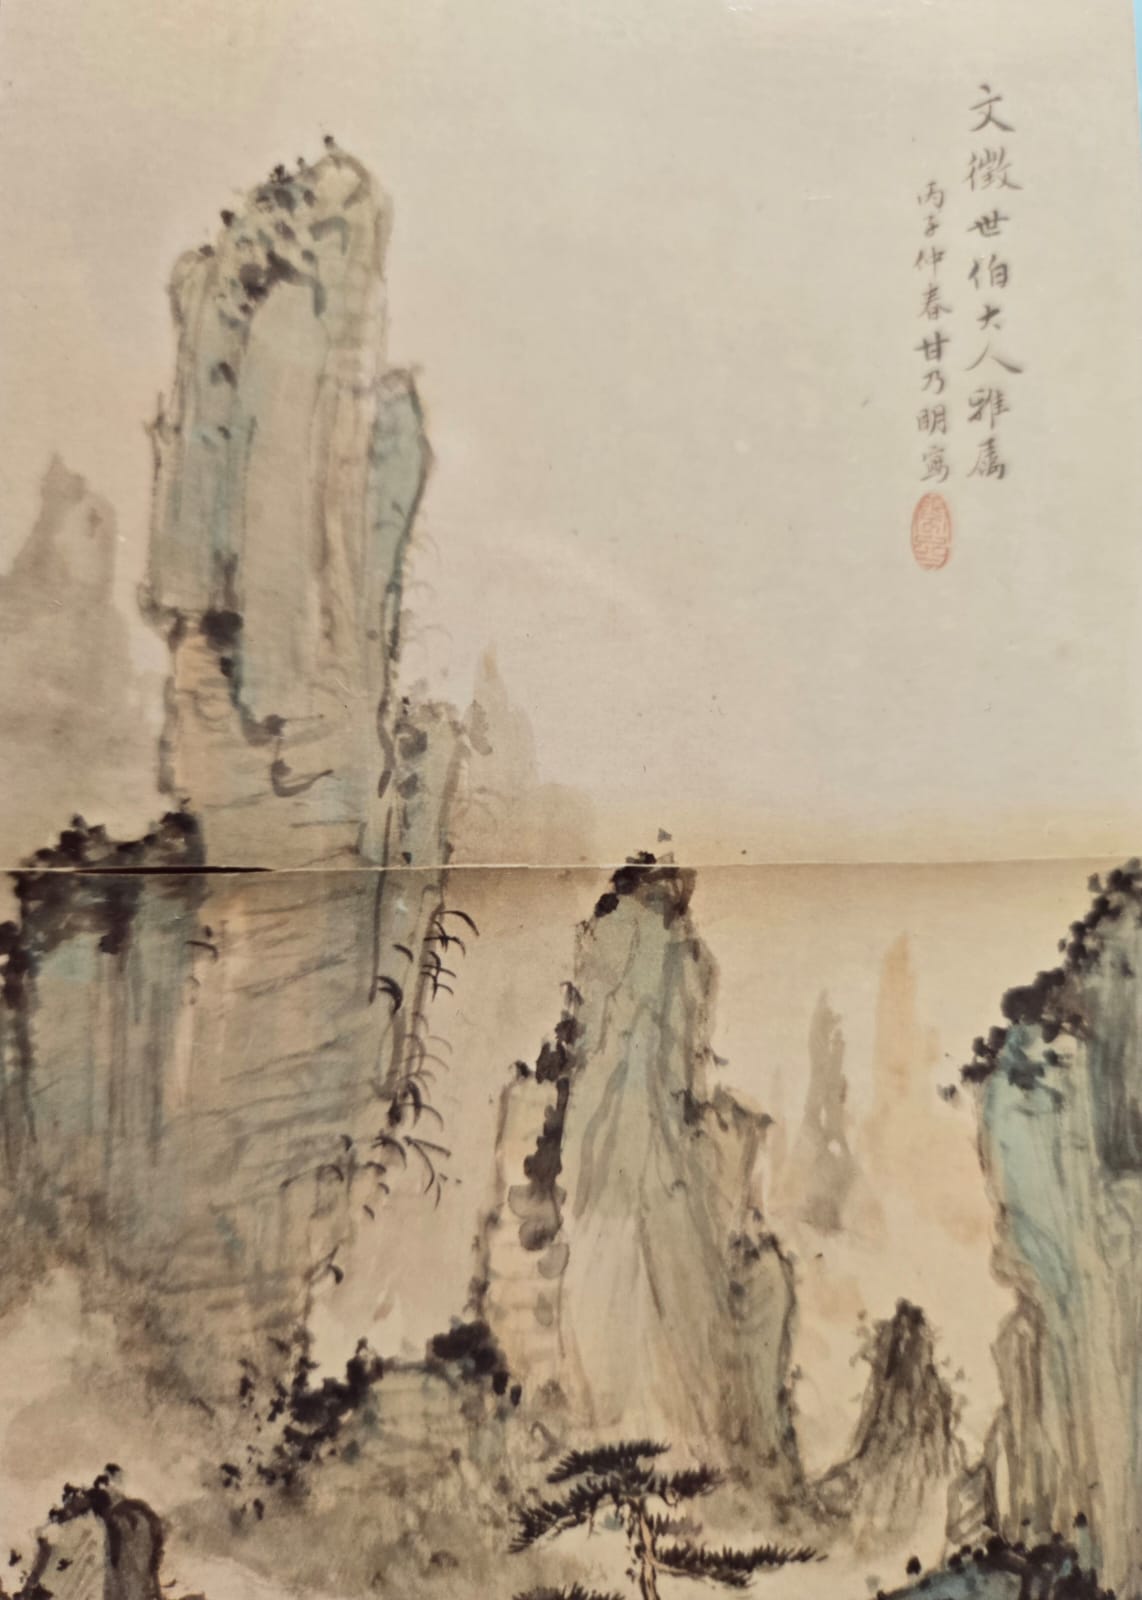 文徵世伯大人雅属
丙子仲春甘乃明寫